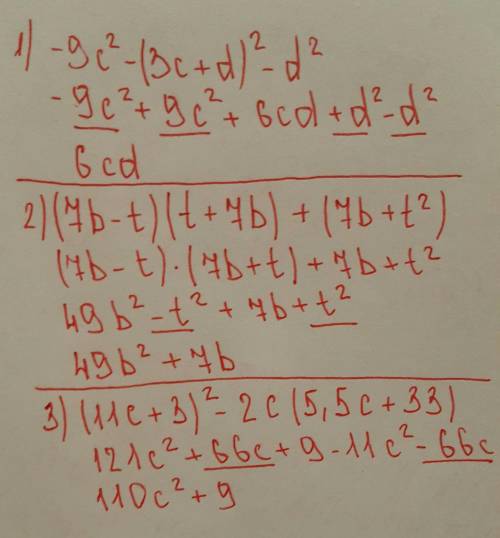 1) -9c² -(3c+d)² -d²
-9c² + 9c² + 6cd + d² - d²
6cd
2) (7b-t)(t+7b) + (7b+t²)
(7b-t)·(7b+t) + 7b + t²
49b² - t² + 7b + t²
49b² + 7b
3) (11c+3)² - 2c(5,5c+33)
121c² + 66c + 9 - 11c² - 66c
110c² + 9